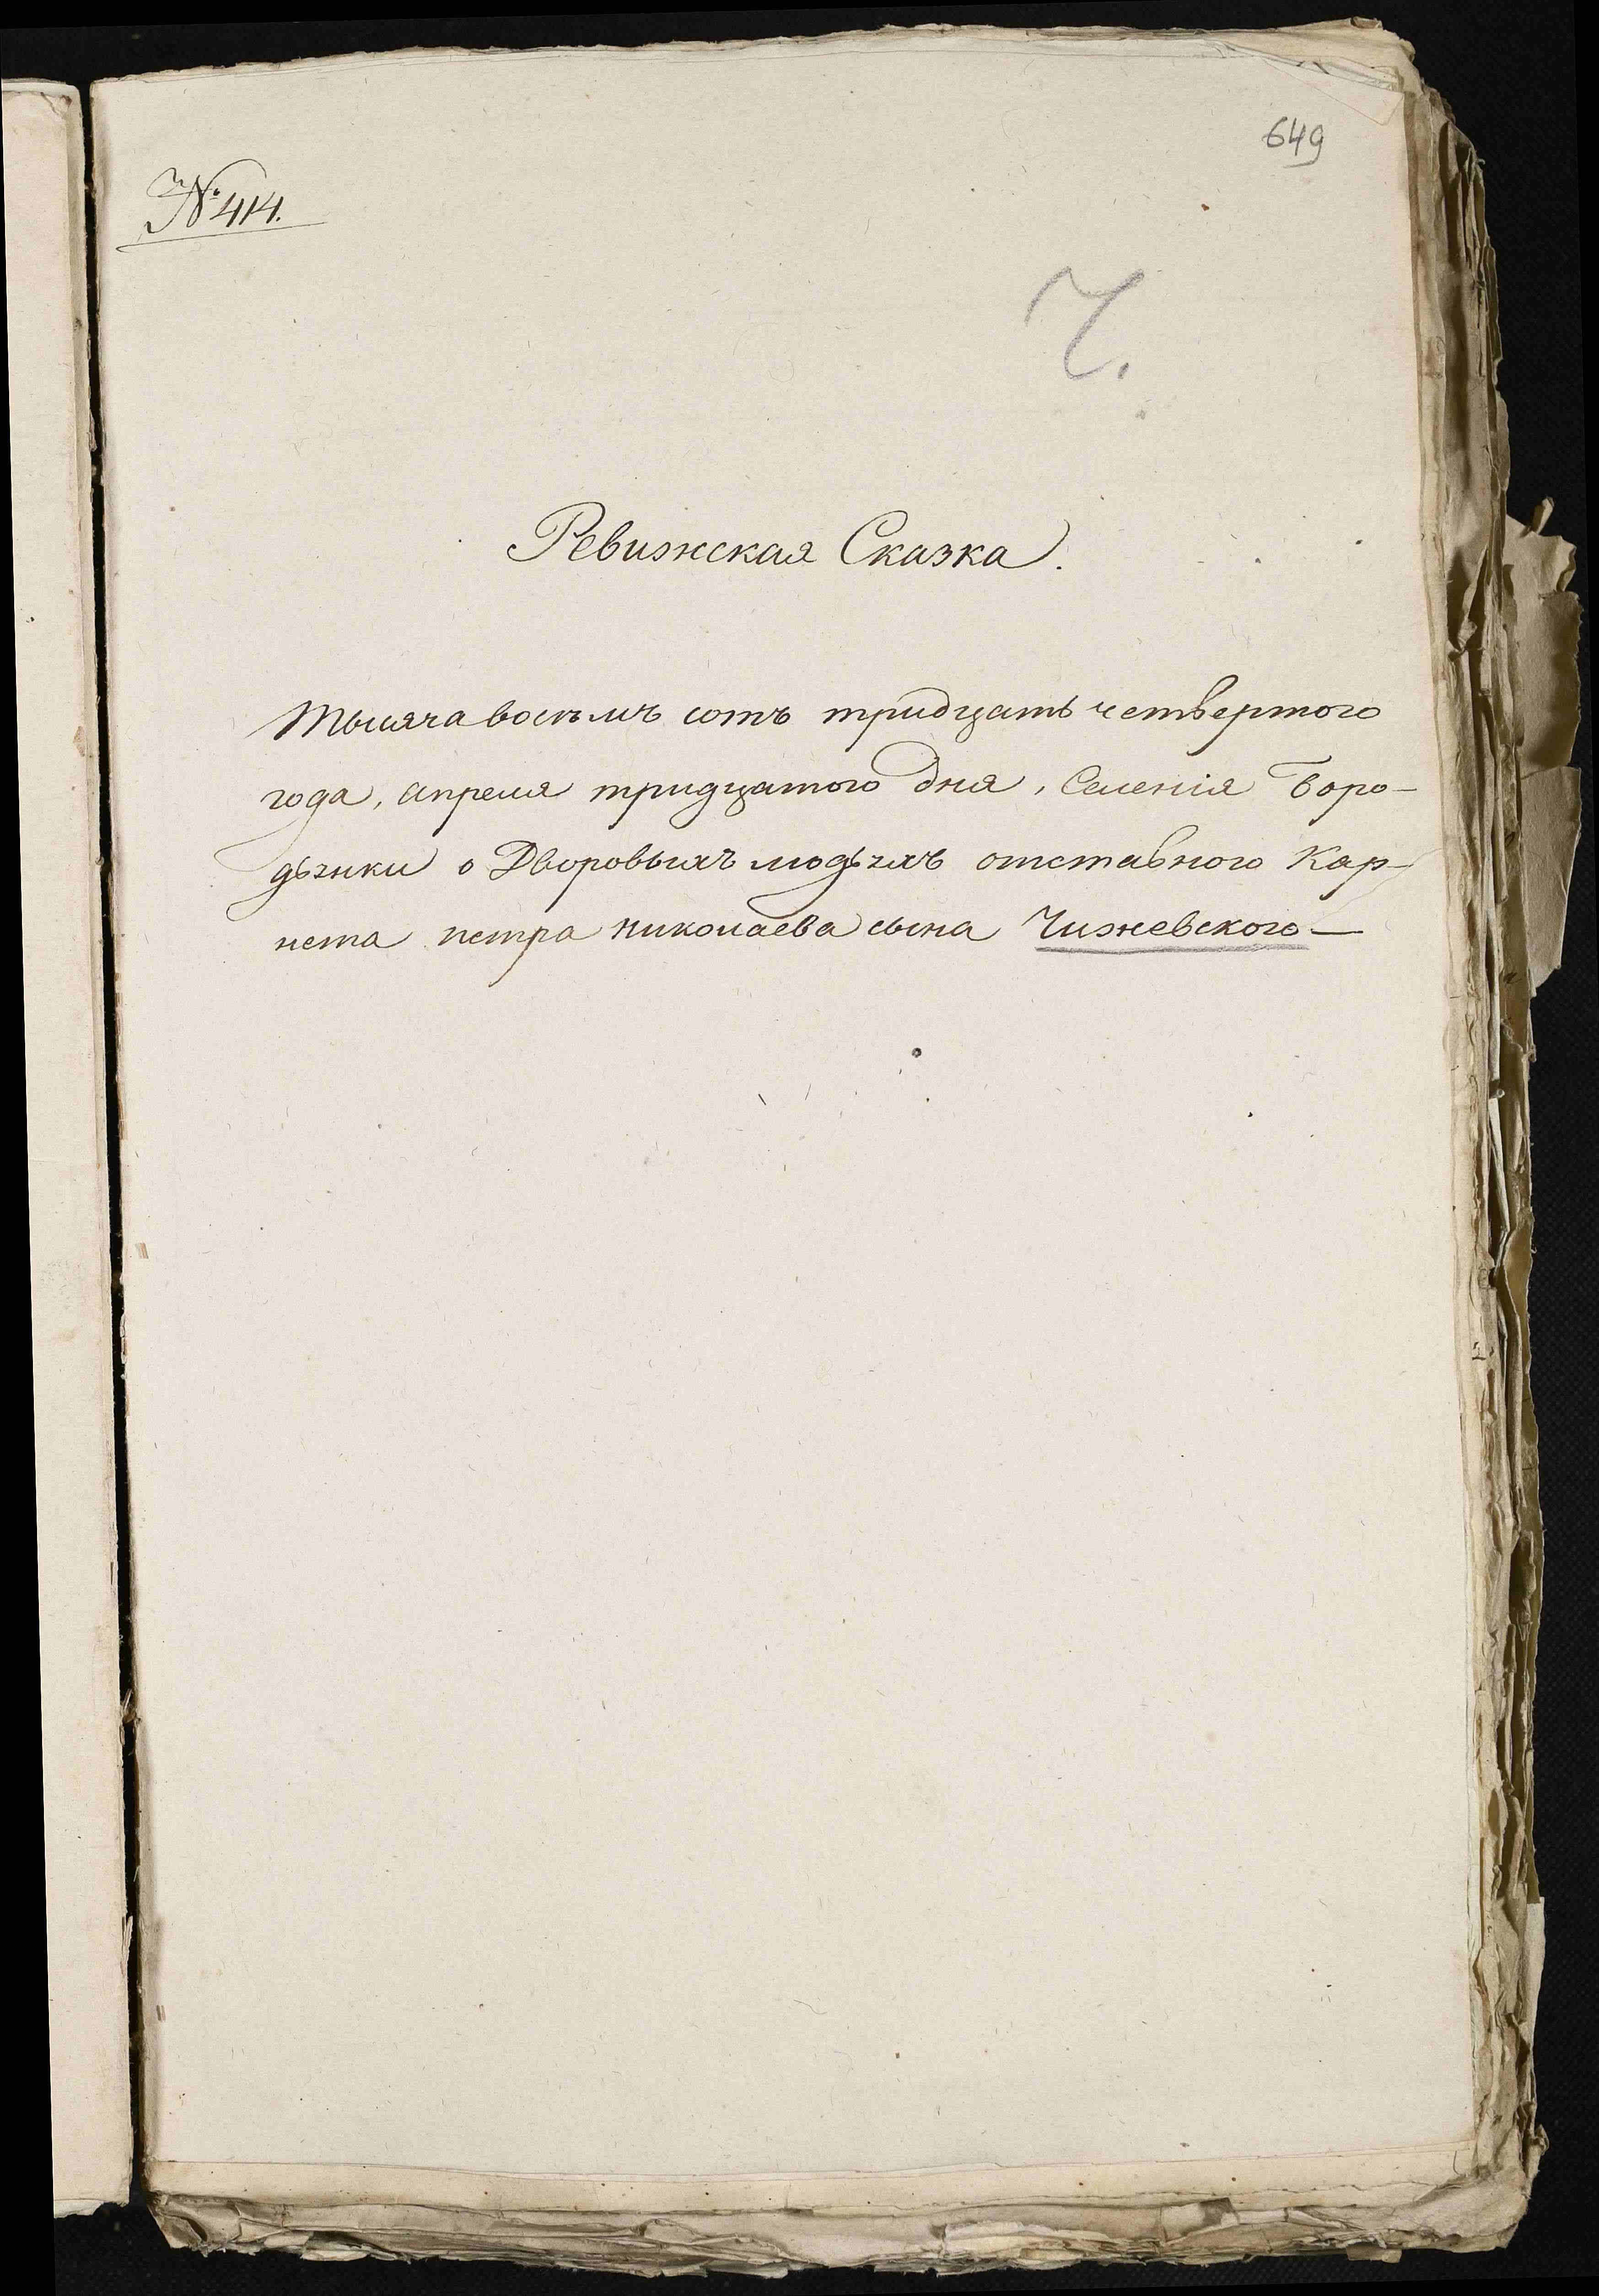 649
№ 414.
Ч.
Ревижская Сказка.
Тысяча восемъ сотъ тридцать четвертого
года, апреля тридцатого дня, Селенія Боро-
дѣнки о Дворовыхъ людѣхъ отставного Кар-
нета петра николаева сына Чижевского —